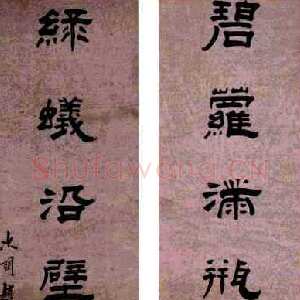 碧蘿滿瓶
綠蟻沿壁
Shufawang.CN